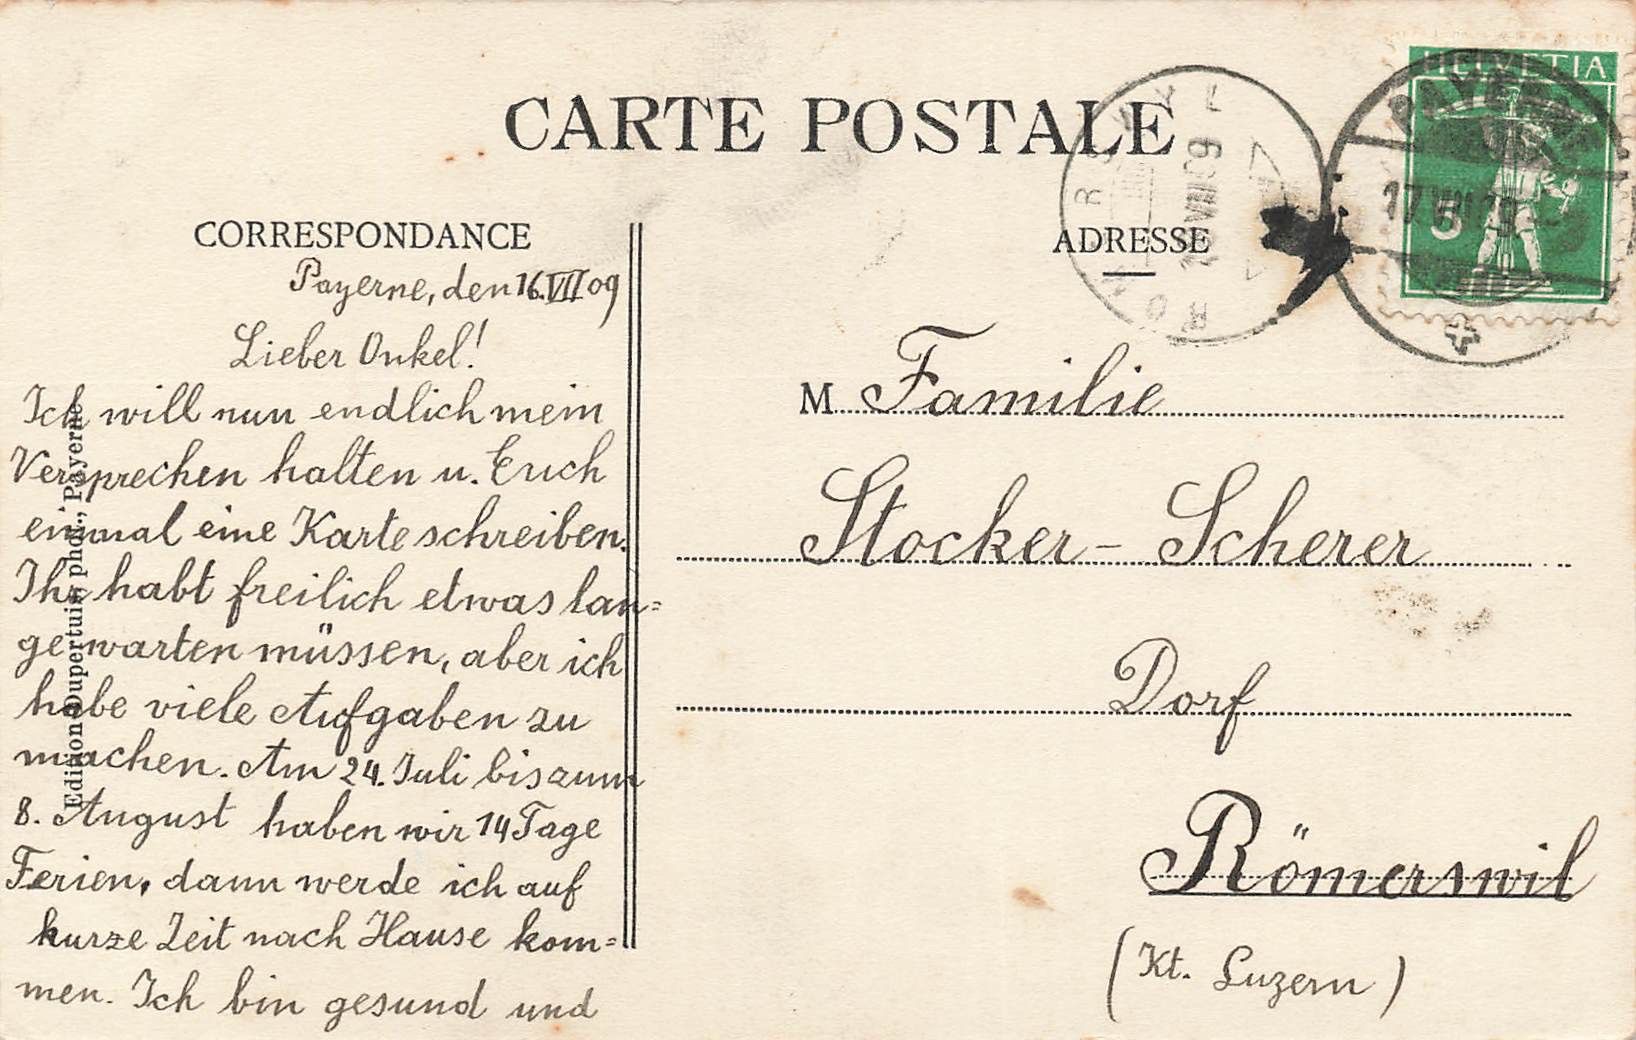 CARTE POSTALE
HELVETIA
5
PAYERNE
17.VII.09
CORRESPONDANCE
ADRESSE
Payerne, den 16.VII 09
Lieber Onkel!
Ich will nun endlich mein
Versprechen halten u. Euch
einmal eine Karte schreiben.
Ihr habt freilich etwas lan=
ge warten müssen, aber ich
habe viele Aufgaben zu
machen. Am 24. Juli bis zum
8. August haben wir 14 Tage
Ferien, dann werde ich auf
kurze Zeit nach Hause kom=
men. Ich bin gesund und
Edition Dupertuis phot., Payerne
M Familie
Stocker - Scherer
Dorf
Römerswil
(Kt. Luzern)